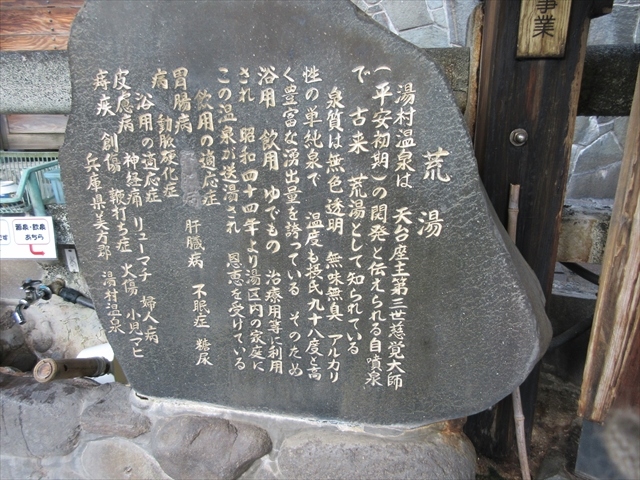 荒湯
湯村温泉は 天台座主第三世慈覚大師
(平安初期)の開発と伝えられる自噴泉
で 古来 荒湯として知られている
泉質は無色透明 無味無臭 アルカリ
性の単純泉で 温度も摂氏九十八度と高
く豊富な湧出量を誇っている そのため
浴用 飲用 ゆでもの 治療用等に利用
され 昭和四十四年より湯区内の家庭に
この温泉が送湯され 恩恵を受けている
飲用の適応症
胃腸病 肝臓病 不眠症 糖尿
病 動脈硬化症
浴用の適応症
皮膚病 神経痛 リューマチ 婦人病
痔疾 創傷 鞭打ち症 火傷 小児マヒ
兵庫県美方郡 湯村温泉
事業
飲泉
あちら